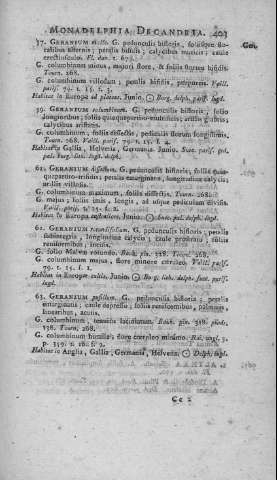 MONADELPHIA DECANDRIA. 403
57. GERANIUM molle. G. pedunculis bifloris, foliisque floralibus alternis; petalis bifidis; calycibus muticis; caule
erectiusculo. Fl. dan. t. 679.
G. columbinum minus, majori flore, & foliis florum bifidis.
Tourn. 268.
G. columbinum villosum; petalis bifidis, purpureis. Vaill.
paris. 79. t. 15. f. 3.
Habitat in Europa ad plateas. Junio.
59. GERANIUM columbinum. G. pedunculis bifloris; folio
longioribus; foliis quinquepartito-multifidis; arillis glabris;
calycibus aristatis.
G. columbinum, foliis dissectis, pediculis florum longissimis.
Tourn. 268. Vaill. paris. 79. t. 15. f. 4.
Habitat in Gallia, Helvetia, Germania. Junio.
61. GERANIUM dissectum. G. pedunculis bifloris, foliis
quinquepartito-trifidis; petalis emarginatis, longitudine calycis;
arillis villosis.
G. columbinum maximum, foliis dissectis. Tourn. 268.
G. majus; foliis imis, longis, ad usque pediculum divisis.
Vaill. paris. t. 15. f. 2.
Habitat in Europa
62. GERANIUM rotundifolium. G. pedunculis bifloris; petalis
subintegris, longitudine calycis; caule prostrato; foliis
reniformibus, incisis.
G. folio Malvæ rotundo. Bauh. pin. 318. Tourn. 268.
G. columbinum majus, flore minore cæruleo. Vaill. paris.
79. t. 15. f. 1.
Habitat in Europæ cultis. Junio.
63. GERANIUM pusillum. G. pedunculis bifloris; petalis
emarginatis; caule depresso; foliis reniformibus, palmatis,
linearibus, acutis.
G. columbinum, tenuius laciniatum. Bauh. pin. 318. prodr.
138. Tourn. 268.
G. columbinum humile; flore cæruleo minimo. Rai. angl. 3.
p. 359. t. 16. f. 2.
Habitat in Anglia, Gallia, Germania, Helvetia.
Cc 2